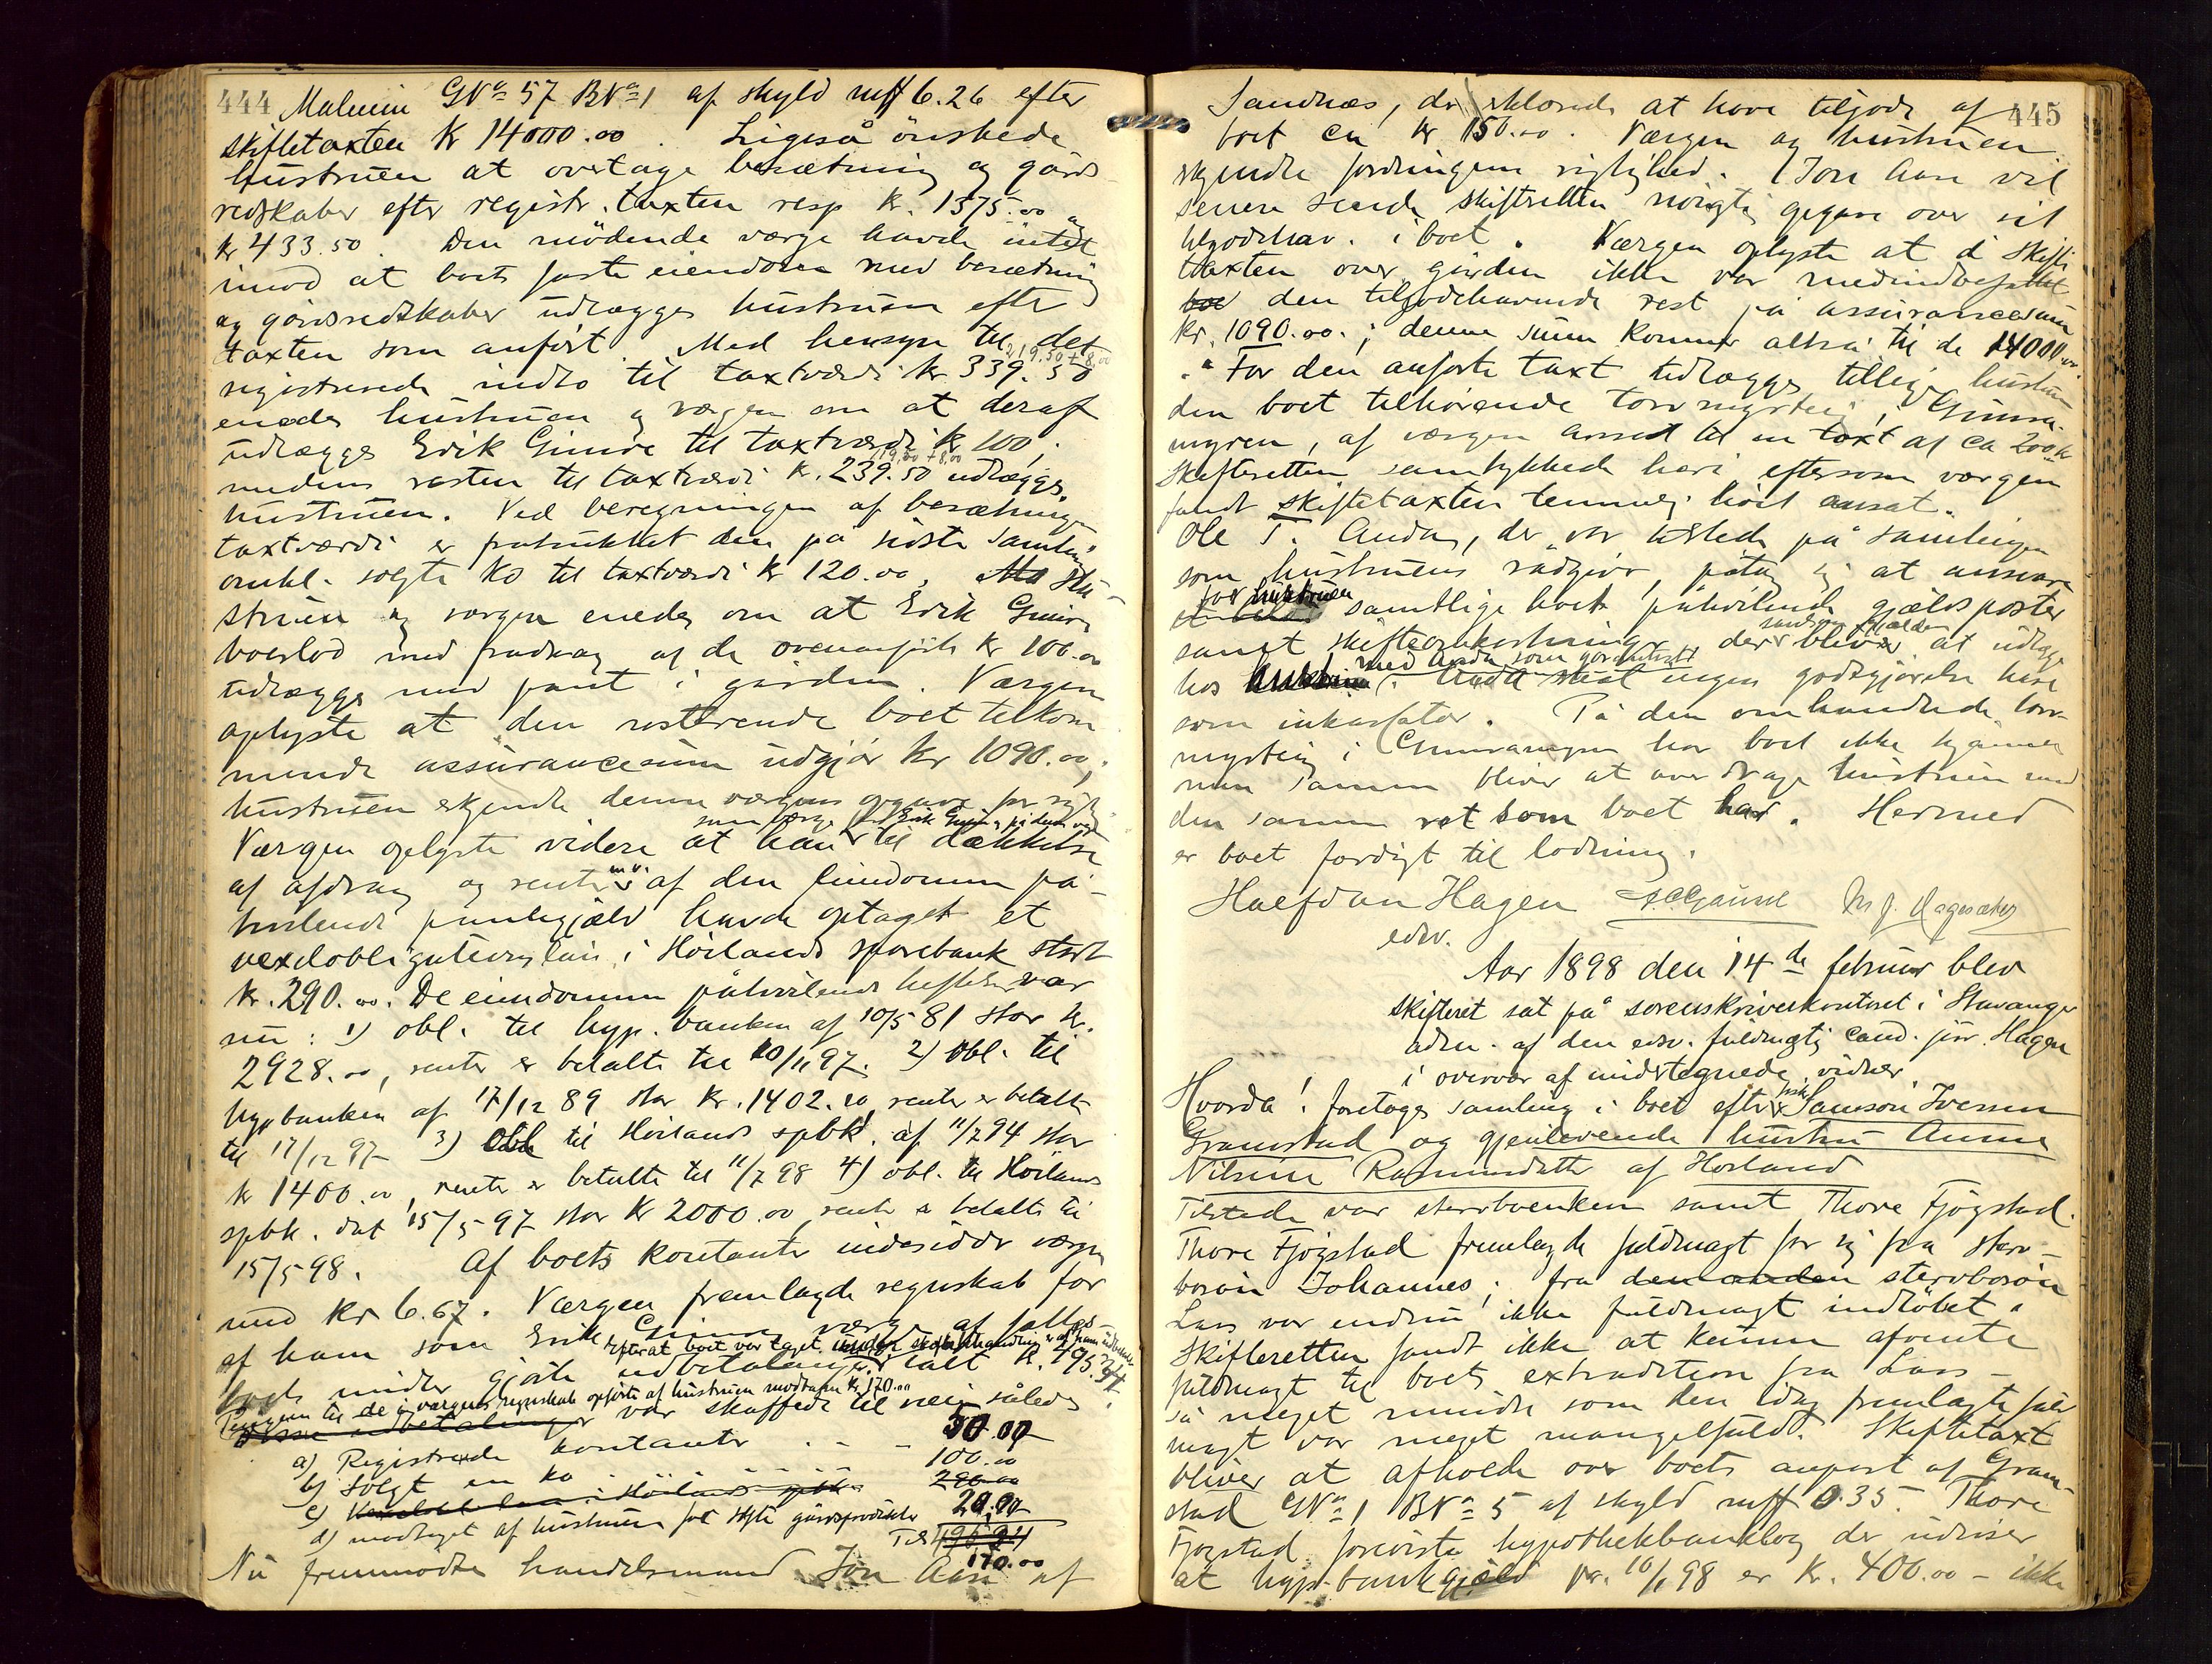 444 Malmin GNo 57 BNo 1 af skyld mk 6.26 efter
skiftetaxten kr 14000.00. Ligeså önskede
hustruen at overtage besætning og gårds
redskaber efter registr. taxten resp kr. 1375.00 og
kr 433.50. Den mödende værge havde intet
imod at boets faste eiendom med besætning
og gårdsredskaber udlægges hustruen efter
taxten som anfört. Med hensyn til det
219.50 + 8.00
registrerede indbo til taxtværdi kr. 339.50
enedes hustruen og værgen om at deraf
udlægges Erik Gimre til taxtværdi kr 100,
119.50 + 8.00
medens resten til taxtværdi kr. 239.50 udlægges
hustruen. Ved beregningen af besætningens
taxtværdi er fratrukket den på sidste samling
omhl. solgte ko til taxtværdi kr 120.00. Hu-
struen og værgen enedes om at Erik Gimres
boeslod med fradrag af de ovenanförte kr 100.00
udlægges med pant i gården. Værgen
oplyste at den resterende boet tilkom-
mende assurancesum udgjör kr 1090.00,
hustruen erkjendte denne værgens opgave for rigtig.
som værge for Erik Gimre på dennes
Værgen oplyste videre at han til dækkelse
af afdrag og renter m.v. af den eiendommen på-
hvilende pantegjæld havde optaget et
vexelobligationslån i Höilands sparebank stort
kr. 290.00. De eiendommen påhvilende heftelser var
nu: 1) obl. til hyp. banken af 10/5 81 stor kr.
2928.00, renter er betalte til 10/11 97. 2) Obl. til
hypbanken af 17/12 89 stor kr. 1402.20, renter er betalt
til 17/12 97 3) Obl til Höilands spbk. af 11/7 94 stor
kr 1400.00, renter er betalte til 11/7 98 4) obl. til Höilands
spbk. dat 15/5 97 stor kr 2000.00 renter er betalte til
15/5 98. Af boets kontanter indesidder værgen
med kr 6.67. Værgen fremlagde regnskab for
af ham som Erik Gimres værge af fælles-
efterat boet var taget under skiftebehandling er af ham udbetalt
boets midler gjorte udbetalinger ialt kr. 195.34.
Pengene til de i værgens regnskab opförte af hustruen modtagne kr 170.00
Disse udbetalinger var skaffede til veie således
a) Registrerede kontanter . . . 50.00
b) Solgt en ko . . . 100.00
c) Vexelobl. lån i Höilands spbk 290.00
d) modtaget af hustruen for solgte gårdsprodukter 20.00
Tils 495.34
170.00
Nu fremmödte handelsmand Jon Aase af
445
Sandnes, der erklærede at have tilgode af
boet ca kr 150.00. Værgen og hustruen
erkjendte fordringens rigtighed. Jon Aase vil
senere sende skifteretten nöiagtig opgave over sit
tilgodehav. i boet. Værgen oplyste at i skifte
taxten over gården ikke var medindbefattet
boe den tilgodehavende rest på assurancesum
kr. 1090.00.; denne sum kommer altså til de 14000.00.
For den anförte taxt udlægges tillige hustruen
den boet tilhörende torvmyrteig i Gimra-
myren, af værgen ansat til en taxt af ca 200 kr
Skifteretten samtykkede heri eftersom værgen
fandt skiftetaxten temmelig höit ansat.
Ole T. Auda, der var tilstede på samlingen
som hustruens rådgiver, påtog sig at ansvare
for hustruen
samtlige boet påhvilende gjældsposter
samt skifteomkostninger der bliver at udlægge
med Auda som garantist
hos hustruen. Auda skal ingen godtgjörelse have
som inkassator. På den omhandlede torv-
myrteig i Gimramyren har boet ikke hjemmel
men samme bliver at overdrage hustruen med
den samme ret som boet har. Hermed
er boet færdigt til lodning.
Halfdan Hagen
edsv.
Aar 1898 den 14de februar blev
skifteret sat på sorenskriverkontoret i Stavanger
adm. af den edsv. fuldmægtig cand. jur. Hagen
i overvær af undertegnede vidner
Hvorda! foretoges samling i boet efter Samson Iversen
Gramstad og gjenlevende hustru Anne
Nilsine Rasmusdatter af Höiland
Tilstede var stervboenken samt Thore Fjogstad.
Thore Fjogstad fremlagde fuldmagt for sig fra sterv-
bosön Johannes; fra den anden stervbosön
Lars var endnu ikke fuldmagt indlöbet.
Skifteretten fandt ikke at kunne afvente
fuldmagt til boets extradition fra Lars –
så meget mindre som den idag fremlagte fuld
magt var meget mangelfuld. Skiftetaxt
bliver at afholde over boets anpart af Gram-
stad GNo 1 BNo 5 af skyld mk 0.35. Thore
Fjogstad foreviste hypothekbankbog der udviser
at hyp. bankgjæld pr. 10/1 98 er kr. 400.00 – ikke